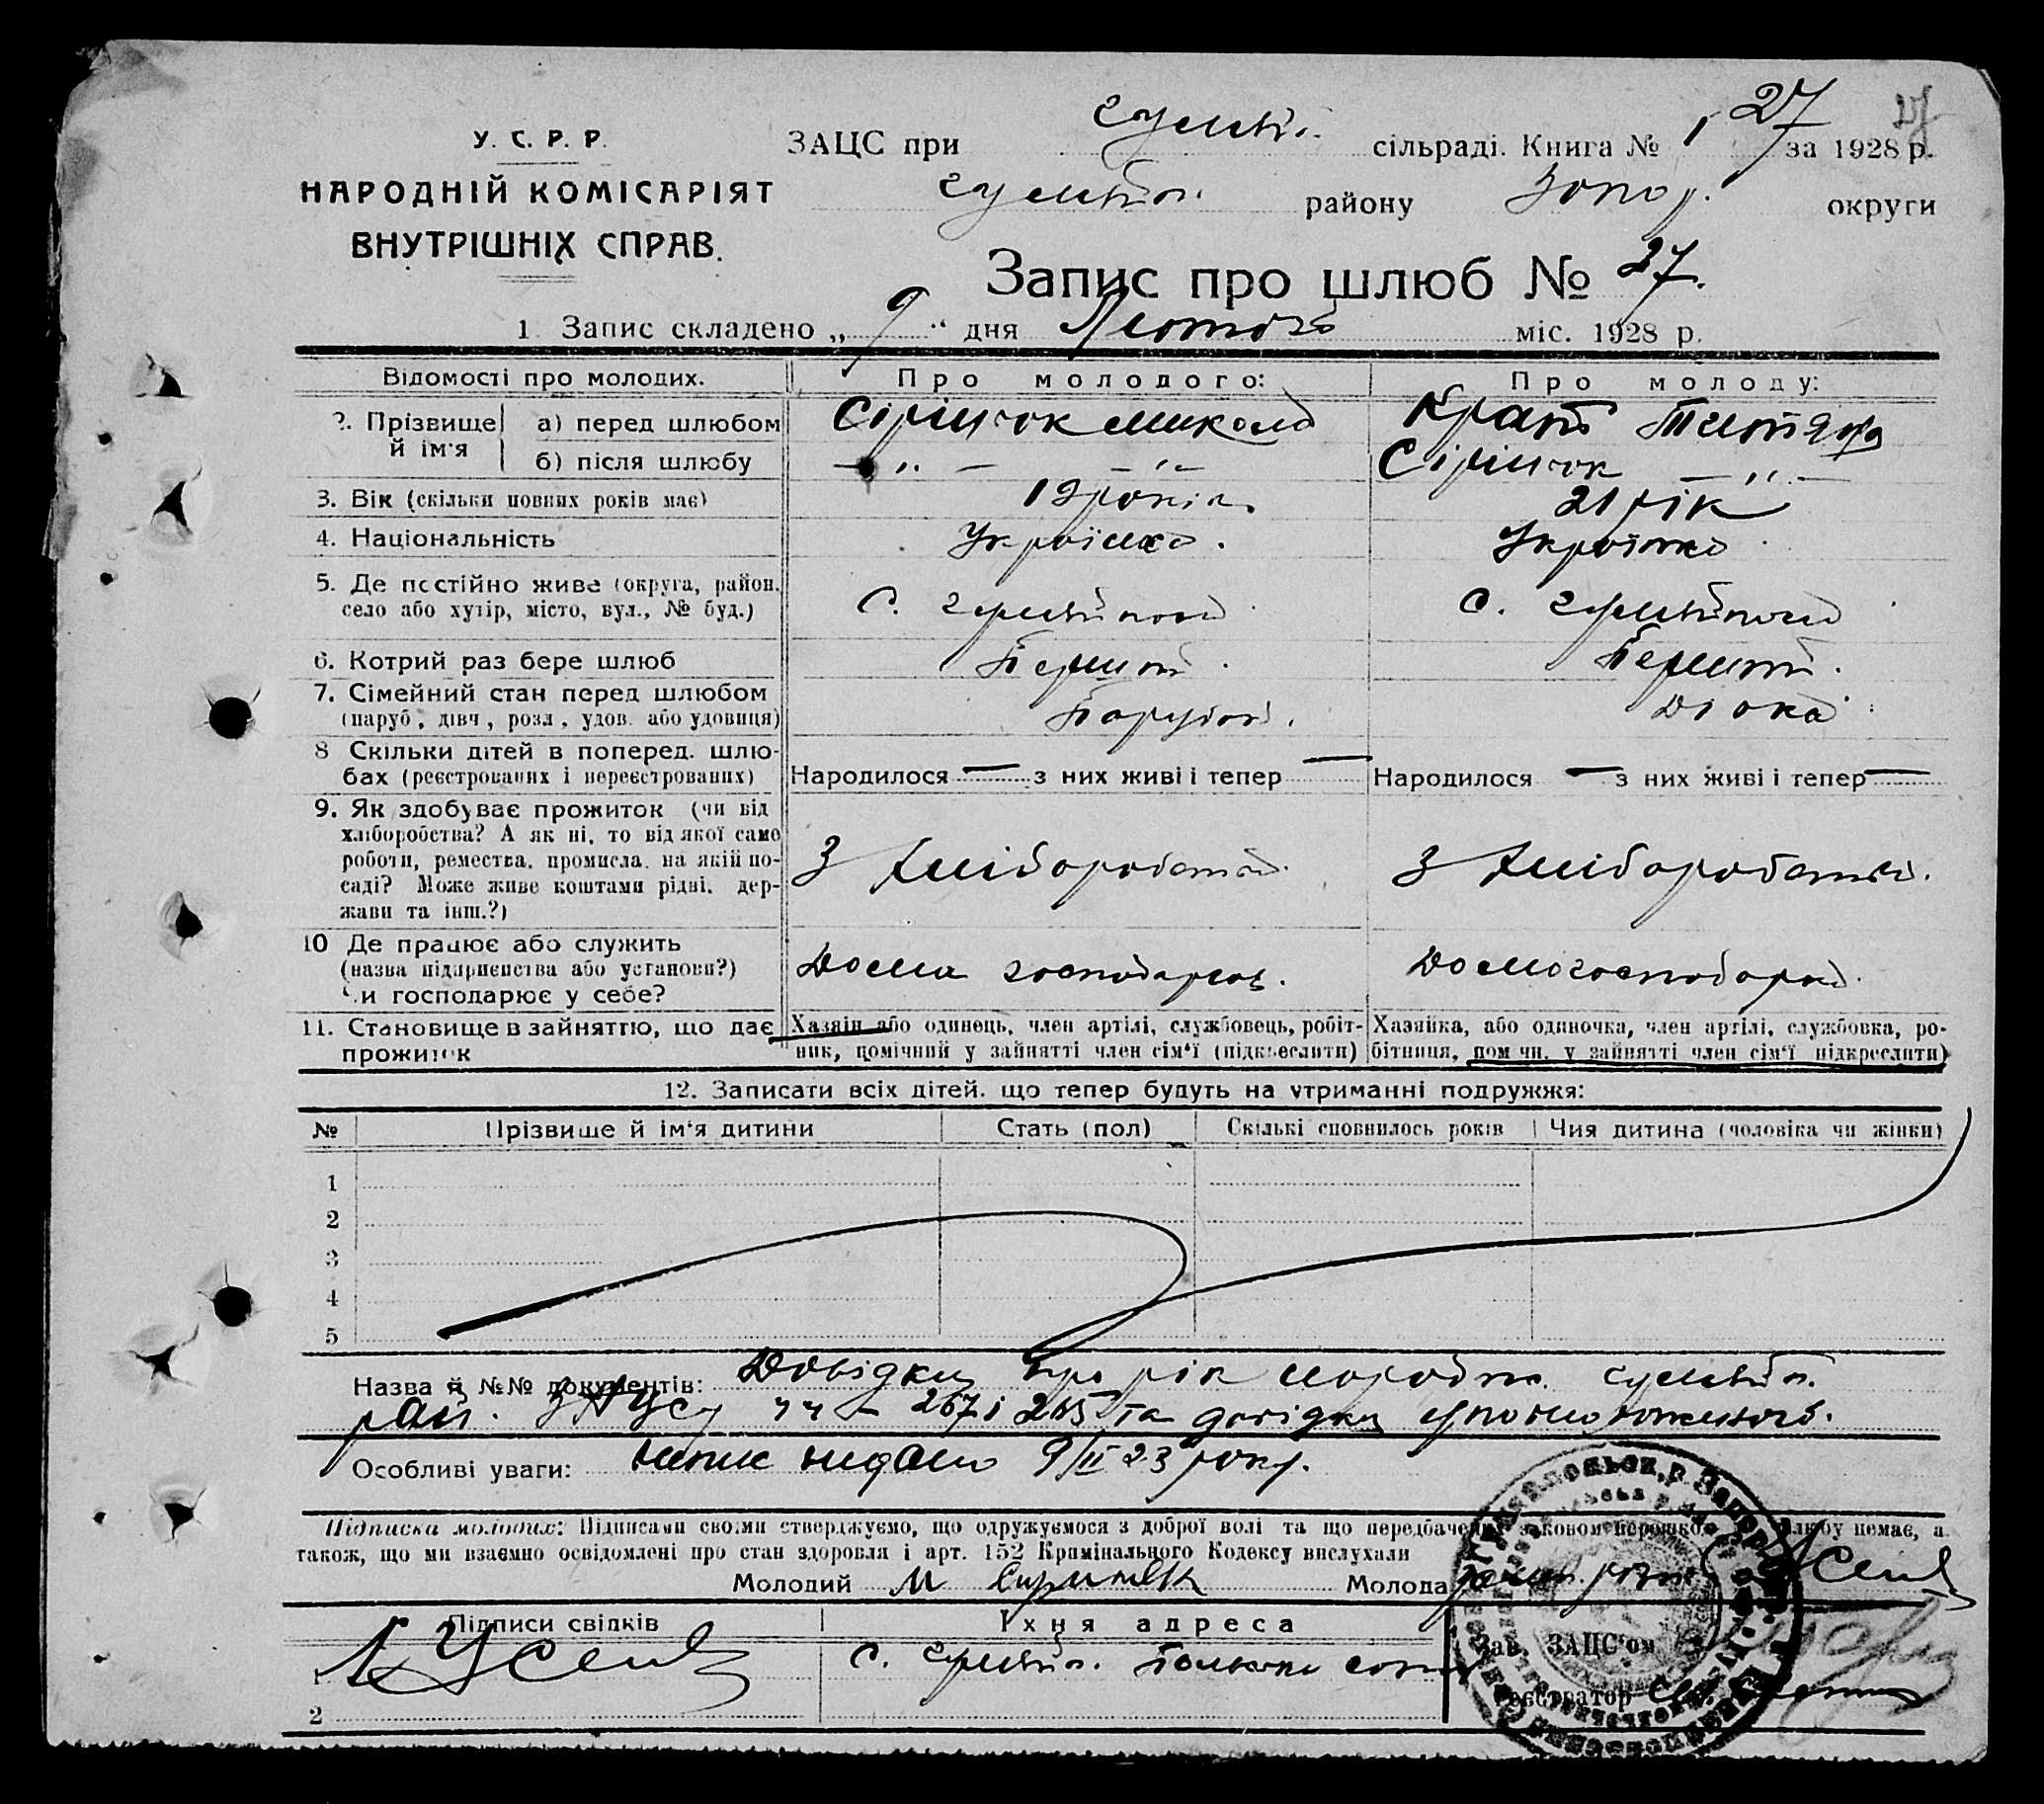 27
У. С. Р. Р.
НАРОДНІЙ КОМІСАРІЯТ
ВНУТРІШНІХ СПРАВ.
ЗАЦС при Гуляйп. сільраді. Книга № 1 27 за 1928 р.
Гуляйп. району Запор. округи
Запис про шлюб № 27.
1. Запис складено „ 9 “ дня Лютого міс. 1928 р.
Відомості про молодих.
Про молодого:
Про молоду:
2. Прізвище й ім'я
а) перед шлюбом
Микола
Титяна
б) після шлюбу
— „ — — „ —
— „ —
3. Вік (скільки повних років має)
19 років.
21 рік
4. Національність
Українка
5. Де постійно живе (округа, район, село або хутір, місто, вул., № буд.)
с. Гуляйполе
с. Гуляйполе
6. Котрий раз бере шлюб
Перший.
Перший.
7. Сімейний стан перед шлюбом
(паруб., дівч., розл., удов. або удовиця)
Парубок.
Дівка
8 Скільки дітей в поперед. шлюбах (реєстрованих і нереєстрованих)
Народилося — з них живі і тепер —
Народилося — з них живі і тепер —
9. Як здобуває прожиток (чи від
хліборобства? А як ні, то від якої саме
роботи, ремества, промисла, на якій посаді? Може живе коштами рідні, держави та інш.?)
З хліборобства.
З хліборобства.
10 Де працює або служить
(назва підприємства або установи?)
Чи господарює у себе?
Дома господарює.
11. Становище в зайняттю, що дає
прожиток
Хазяін або одинець, член артілі, службовець, робітник, помічний у зайнятті член сім'ї (підкреслити)
Хазяйка, або одиночка, член артілі, службовка, робітниця, пом чн. у зайнятті член сім'ї підкреслити)
12. Записати всіх дітей, що тепер будуть на утриманні подружжя:
№
Прізвище й ім'я дитини
Стать (пол)
Скількі сповнилось років
Чия дитина (чоловіка чи жінки)
1
2
3
4
5
Назва й №№ документів: Довідки про рік народж. Гуляйп.
рай. ЗАЦСу чч 267 і 265 та довідки
Особливі уваги: 9/II 23 року.
Підписка молодих: Підписами своїми стверджуємо, що одружуємося з доброї волі та що передбачених законом перешкод шлюбу немає, а
також, що ми взаємно освідомлені про стан здоровля і арт. 152 Кримінального Кодексу вислухали
Молодий М
Молода
Підписи свідків
Їхня адреса
1
с. Гуляйп.
2
Зав. ЗАЦС'ом
Реєстратор